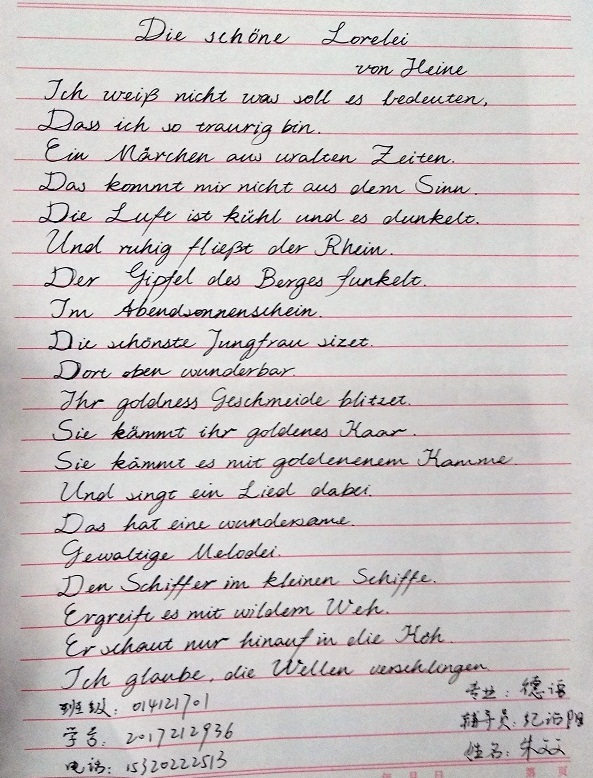 Die schöne Lorelei
von Heine
Ich weiß nicht was soll es bedeuten,
Dass ich so traurig bin.
Ein Märchen aus uralten Zeiten.
Das kommt mir nicht aus dem Sinn.
Die Luft ist kühl und es dunkelt.
Und ruhig fließt der Rhein.
Der Gipfel des Berges funkelt.
Im Abendsonnenschein.
Die schönste Jungfrau sizet.
Dort oben wunderbar
Ihr goldness Geschmeide blitzet.
Sie kämmt ihr goldenes Haar.
Sie kämmt es mit goldenenem Kamme
Und singt ein Lied dabei.
Das hat eine wundersame.
Gewaltige Melodei.
Den Schiffer im kleinen Schiffe.
Ergreift es mit wildem Weh.
Er schaut nur hinauf in die Höh.
Ich glaube, die Wellen verschlingen
班级: 014121701 专业: 德语
学号: 2017212936 辅导员: 纪沿阳
电话: 15320222513 姓名: 朱文文
年 月 日 第 页